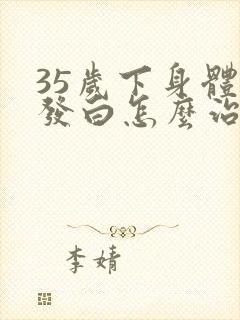 35歲下身體
發白怎麼治
李婧